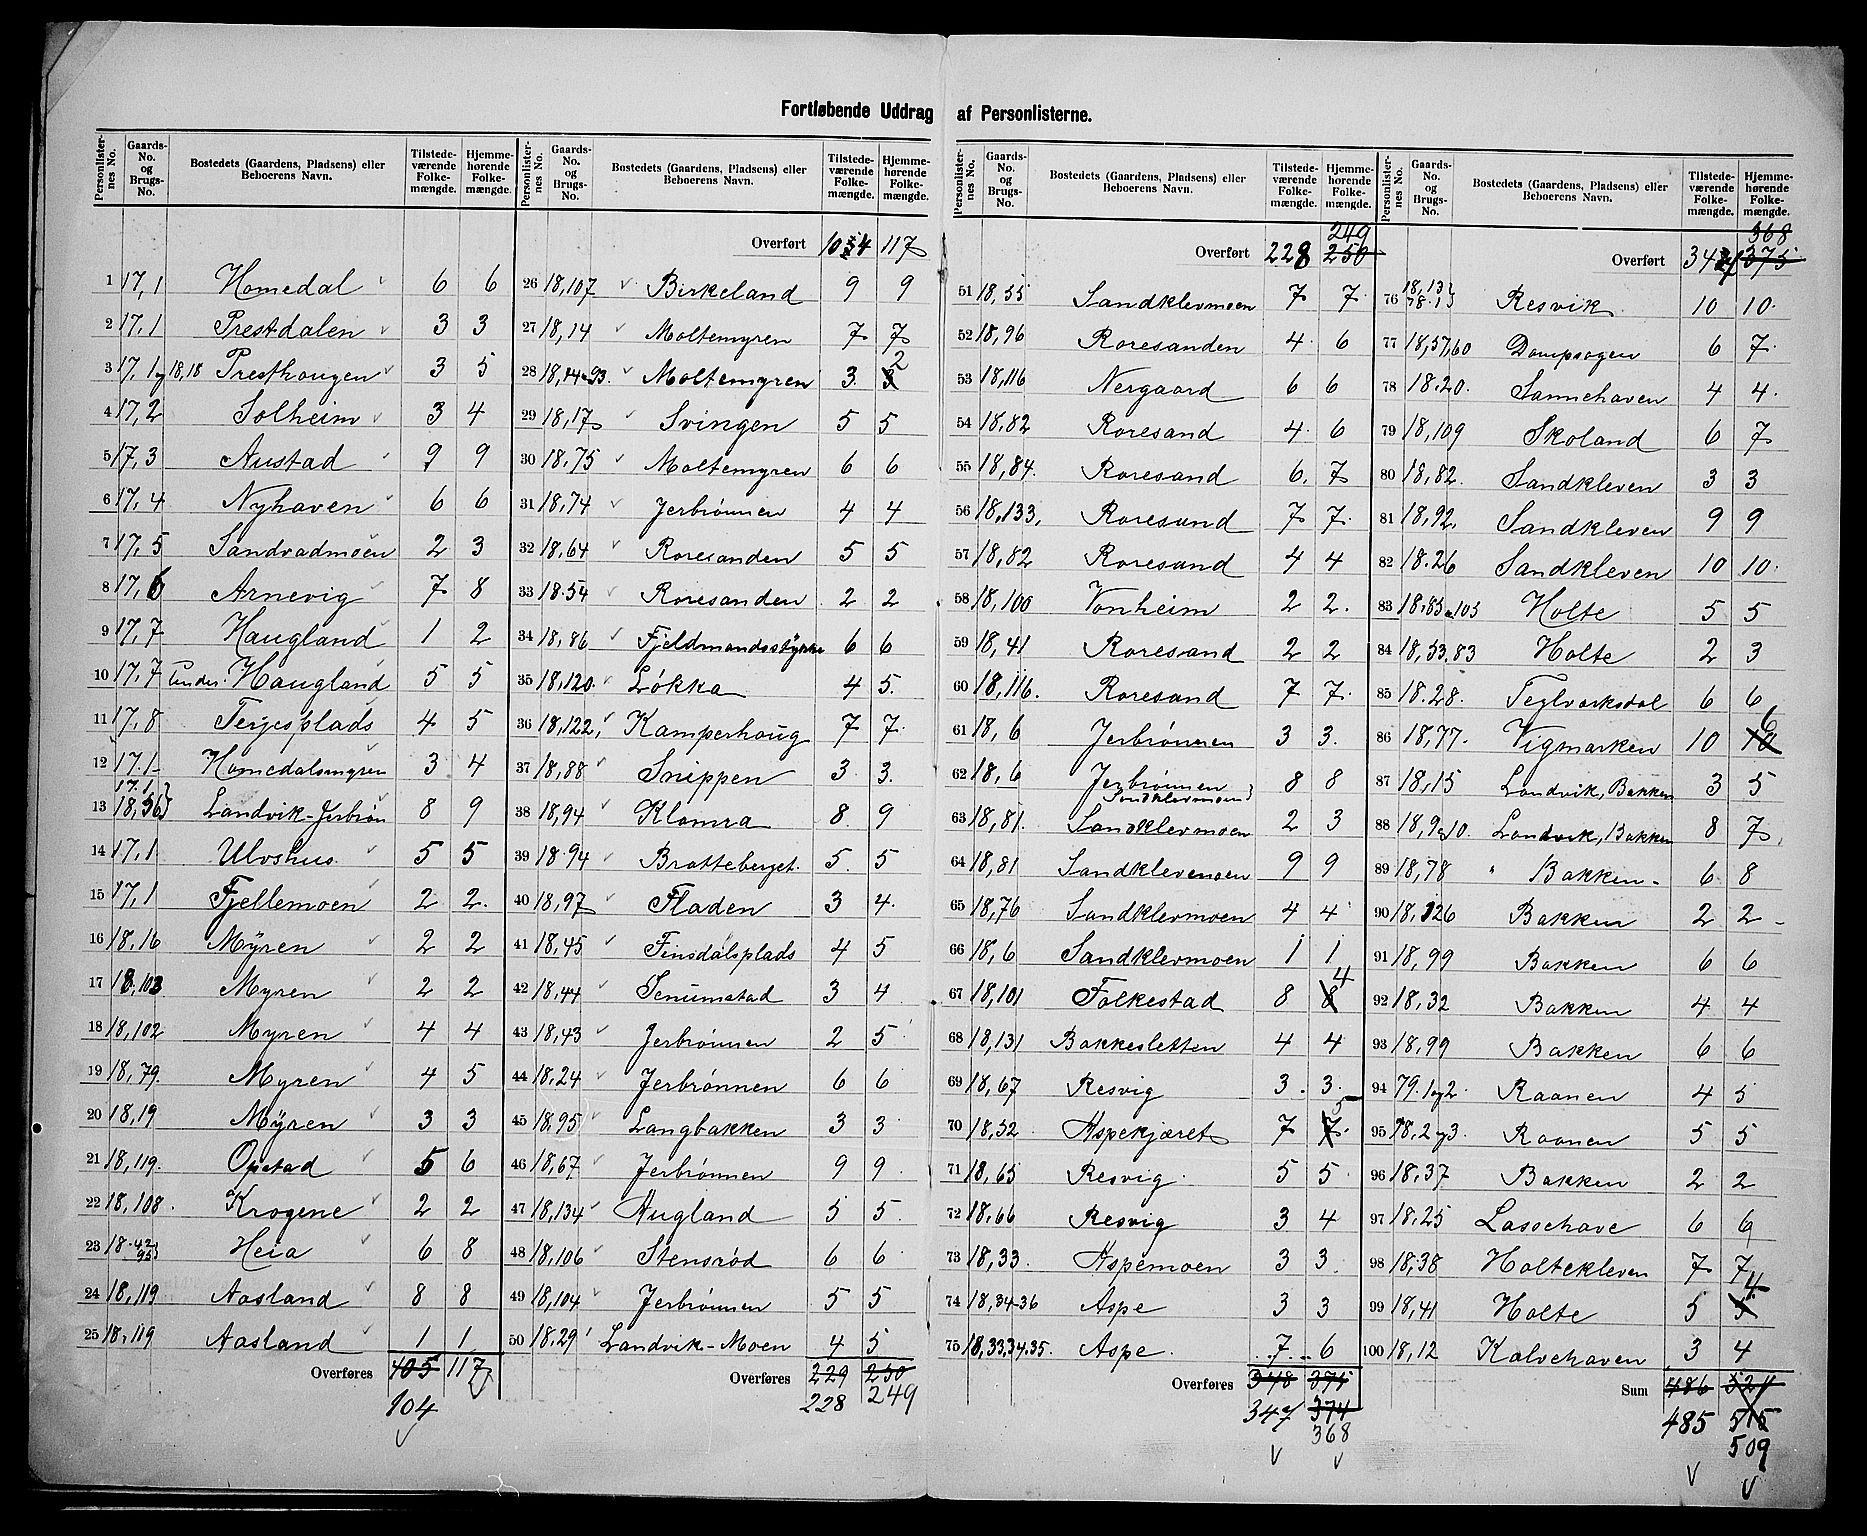 Fortløbende Uddrag af Personlisterne.
Personlister-nes No. Gaards-No. og Brugs-No. Bostedets (Gaardens, Pladsens) eller Beboerens Navn. Tilstede-værende Folke-mængde. Hjemme-hørende Folke-mængde.
1 17,1 Homedal 6 6
2 17,1 Prestdalen 3 3
3 17,1 y 18,18 Presthougen 3 5
4 17,2 Solheim 3 4
5 17,3 Austad 9 9
6 17,4 Nyhaven 6 6
7 17,5 Sandvadmoen 2 3
8 17,6 Arnevig 7 8
9 17,7 Haugland 1 2
10 17,7 under Haugland 5 5
11 17,8 Terjesplads 4 5
12 17.1 Homedalsmyren 3 4
13 17.1 18,56} Landvik-Jerbrøn 8 9
14 17,1 Ulvshus 5 5
15 17,1 Fjellemoen 2 2
16 18,16 Myren 2 2
17 18,103 Myren 2 2
18 18,102 Myren 4 4
19 18,79 Myren 4 5
20 18,19 Myren 3 3
21 18,119. Opstad 5 6
22 18,108. Krogene 2 2
23 18.42 95} Heia 6 8
24 18,119 Aasland 8 8
25 18,119 Aasland 1 1
Overføres 405 117
104
Personlister-nes No. Gaards-No. og Brugs-No. Bostedets (Gaardens, Pladsens) eller Beboerens Navn. Tilstede-værende Folke-mængde. Hjemme-hørende Folke-mængde.
Overført 104 117
26 18,107 Birkeland 9 9
27 18,14 Moltemyren 7 7
28 18,14 93. Moltemyren 3 3 2
29 18,17 Svingen 5 5
30 18.75 Moltemyren 6 6
31 18,74 Jerbrønnen 4 4
32 18,64 Roresanden 5 5
33 18.54 Roresanden 2 2
34 18,86 Fjeldmandsstykke 6 6
35 18,120. Løkka 4 5.
36 18,122, Kamperhoug 7 7
37 18,88 Snippen 3 3.
38 18,94 Klomra 8 9
39 18.94 Bratteberget. 5 5
40 18,97 Fladen 3 4.
41 18,45 Finsdalsplads 4 5
42 18,44 Senumstad 3 4
43 18,43 Jerbrønnen 2 5
44 18,24 Jerbrønnen 6 6
45 18,95 Langbakken 3 3
46 18,67 Jerbrønnen 9 9
47 18,134 Hugland 5 5
48 18,106 Stensrød 6 6
49 18,104 Jerbrønnen 5 5
50 18.29 Landvik-Moen 4 5
Overføres 229 250
228 249
Personlister-nes No. Gaards-No. og Brugs-No. Bostedets (Gaardens, Pladsens) eller Beboerens Navn. Tilstede-værende Folke-mængde. Hjemme-hørende Folke-mængde.
249
Overført 228 250
51 18,55 Sandklevmoen 7 7
52 18,96 Roresanden 4 6
53 18,116 Nergaard 6 6
54 18,82 Roresand 4 6
55 18,84. Roresand 6. 7
56 18,133, Roresand 7 7
57 18,82 Roresand 4 4
58 18,100 Vonheim 2 2.
59 18,41 Roresand 2 2
60 18,116. Roresand 7 7
61 18,6 Jerbrønnen 3 3.
62 18,6 Jerbrønnen Sandklevmoen} 8 8
63 18,81. Sandklevmoen 2 3
64 18,81 Sandklevmoen 9 9
65 18,76 Sandklevmoen 4 4
66 18,6 Sandklevmoen 1 1
67 18,101 Folkestad 8 8 4
68 18,131 Bakkesletten 4 4
69 18,67 Resvig 3. 3.
70 18.52 Aspekjæret 7 7 5
71 18,65 Resvig 5 5
72 18,66 Resvig 3 4
73 18,33. Aspemoen 3 3
74 18,34-36 Aspe 3 3
75 18,33,34.35. Aspe 7 6
Overføres 348 375
347 374
368
Personlister-nes No. Gaards-No. og Brugs-No. Bostedets (Gaardens, Pladsens) eller Beboerens Navn. Tilstede-værende Folke-mængde. Hjemme-hørende Folke-mængde.
368
Overført 347 375
76 18,13} 78.1} Resvik 10 10.
77 18,57,60 Dompsogen 6 7
78 18.20. Sannehaven 4 4.
79 18,109 Skoland 6 7
80 18,82. Sandkleven 3 3
81 18,92. Sandkleven 9 9
82 18.26 Sandkleven 10 10.
83 18,85 103 Holte 5 5
84 18,53,83 Holte 2 3
85 18.28. Teglverksdal 6 6
86 18,77. Vigmarken 10 10 6
87 18,15 Landvik, Bakken 3 5
88 18,9 y 10. Landvik, Bakken 8 7
89 18,78 " Bakken 6 8
90 18,126 Bakken 2 2
91 18,99 Bakken 6 6
92 18,32 Bakken 4 4
93 18,99 Bakken 6 6
94 79.1 y 2 Raanen 4 5
95 78.2 y 3. Raanen 5 5
96 18,37 Bakken 2 2
97 18,25 Lassehave 6 6
98 18,38 Holtekleven 7 7
99 18,41 Holte 5 5 4
100 18,12 Kalvehaven 3 4
Sum 486 521
485 515
509